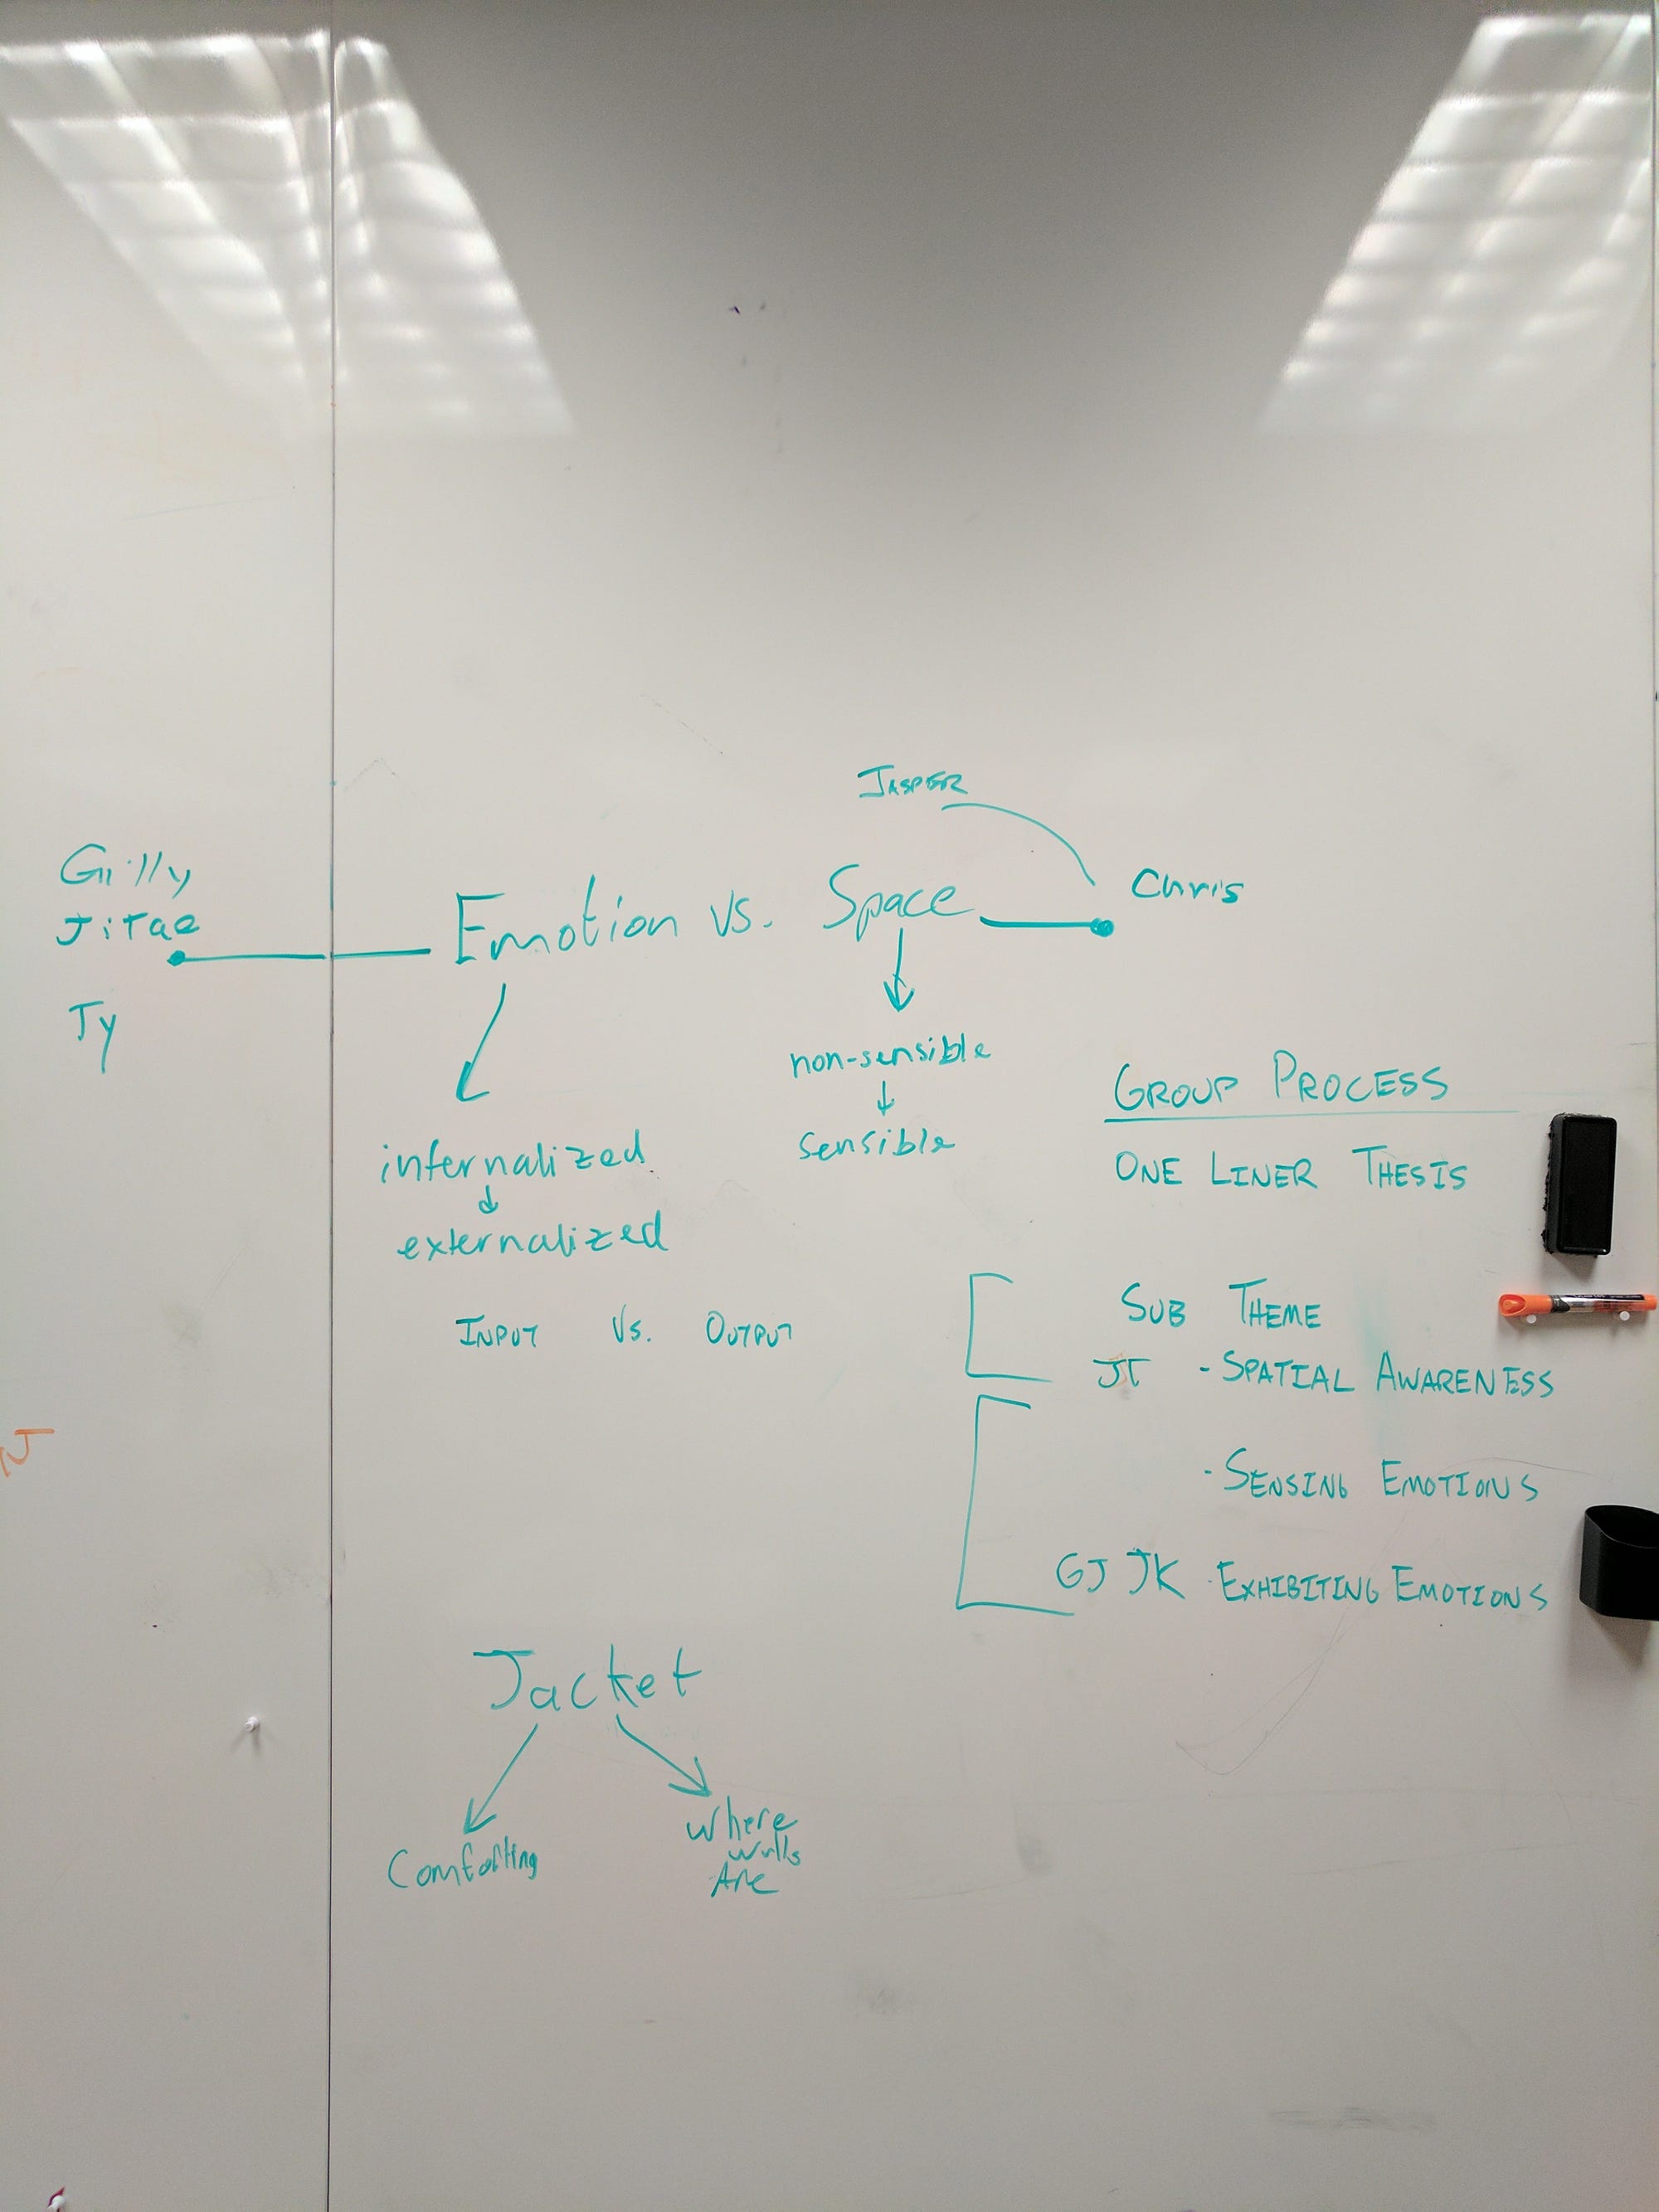 JASPER
Gilly
Jitae
Ty
Emotion vs. Space
Chris
non-sensible
sensible
internalized
externalized
INPUT Vs. OUTPUT
GROUP PROCESS
ONE LINER THESIS
SUB THEME
JT - SPATIAL AWARENESS
- SENSING EMOTIONS
GJ JK - EXHIBITING EMOTIONS
Jacket
Comforting
where
walls
Are